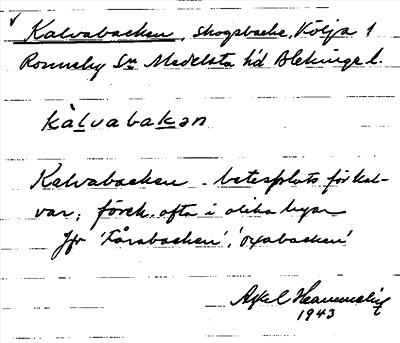 Kalvabacken, skogsbacke, Kolja 1
Ronneby Sn Medelsta hd Blekinge l.
kàlvabakan
Kalvabacken - betesplats för kal-
var; förek. ofta i olika byar
Jfr 'Fårabacken', 'oxabacken'
Axel
1943